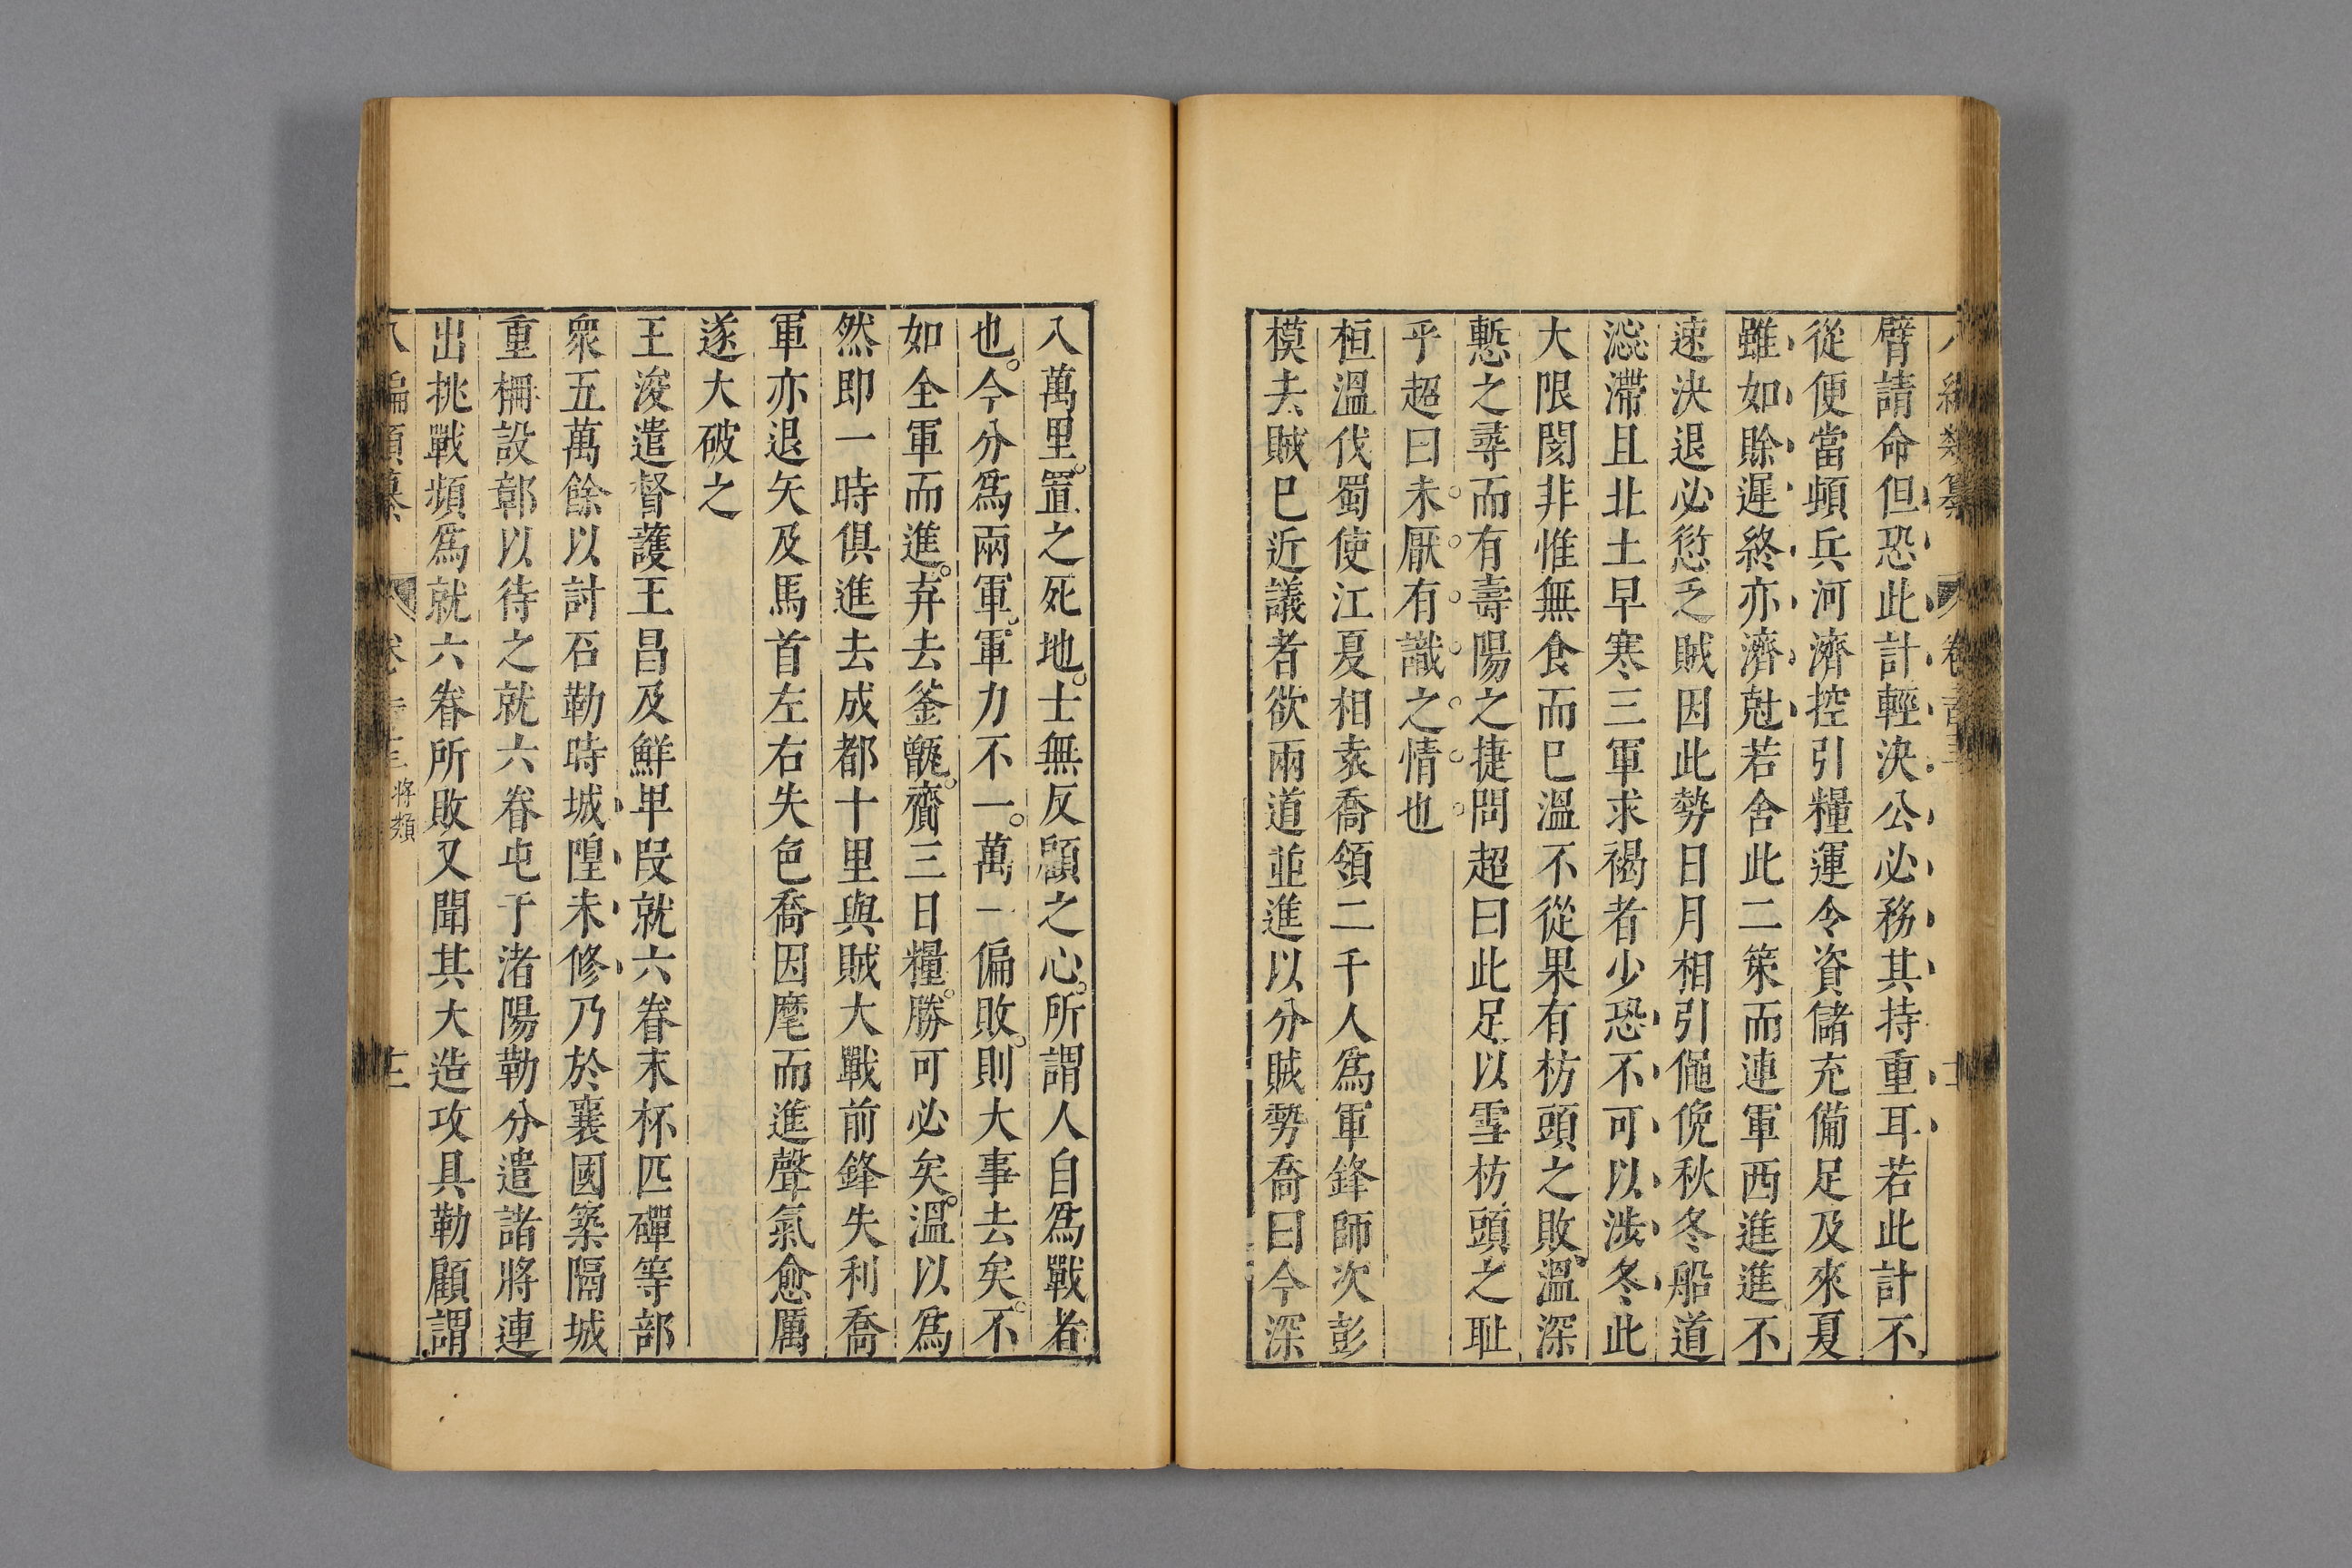 臂請命但恐此計輕決公必務其持重耳若此計不
從便當頓兵河濟控引糧運令資儲充備足及來夏
雖如賒遲終亦濟尅若舍此二策而連軍西進進不
速決退必愆乏賊因此勢日月相引僶俛秋冬船道
澁滯且北土早寒三軍求褐者少恐不可以涉冬此
大限閡非惟無食而巳溫不從果有枋頭之敗溫深
慙之尋而有壽陽之捷問超曰此足以雪枋頭之耻
乎超曰未厭有識之情也
桓溫伐蜀使江夏相袁喬領二千人爲軍鋒師次彭
模去賊巳近議者欲兩道並進以分賊勢喬曰今深
入萬里。置之死地。士無反顧之心。所謂人自爲戰者
也。今分爲兩軍。軍力不一。萬一偏敗。則大事去矣。不
如全軍而進。弃去釜甑。齎三日糧。勝可必矣。溫以爲
然即一時俱進去成都十里與賊大戰前鋒失利喬
軍亦退矢及馬首左右失色喬因麾而進聲氣愈厲
遂大破之
王浚遣督護王昌及鮮卑段就六眷末杯匹磾等部
衆五萬餘以討石勒時城隍未修乃於襄國築隔城
重柵設鄣以待之就六眷屯于渚陽勒分遣諸將連
出挑戰頻爲就六眷所敗又聞其大造攻具勒顧謂
將類